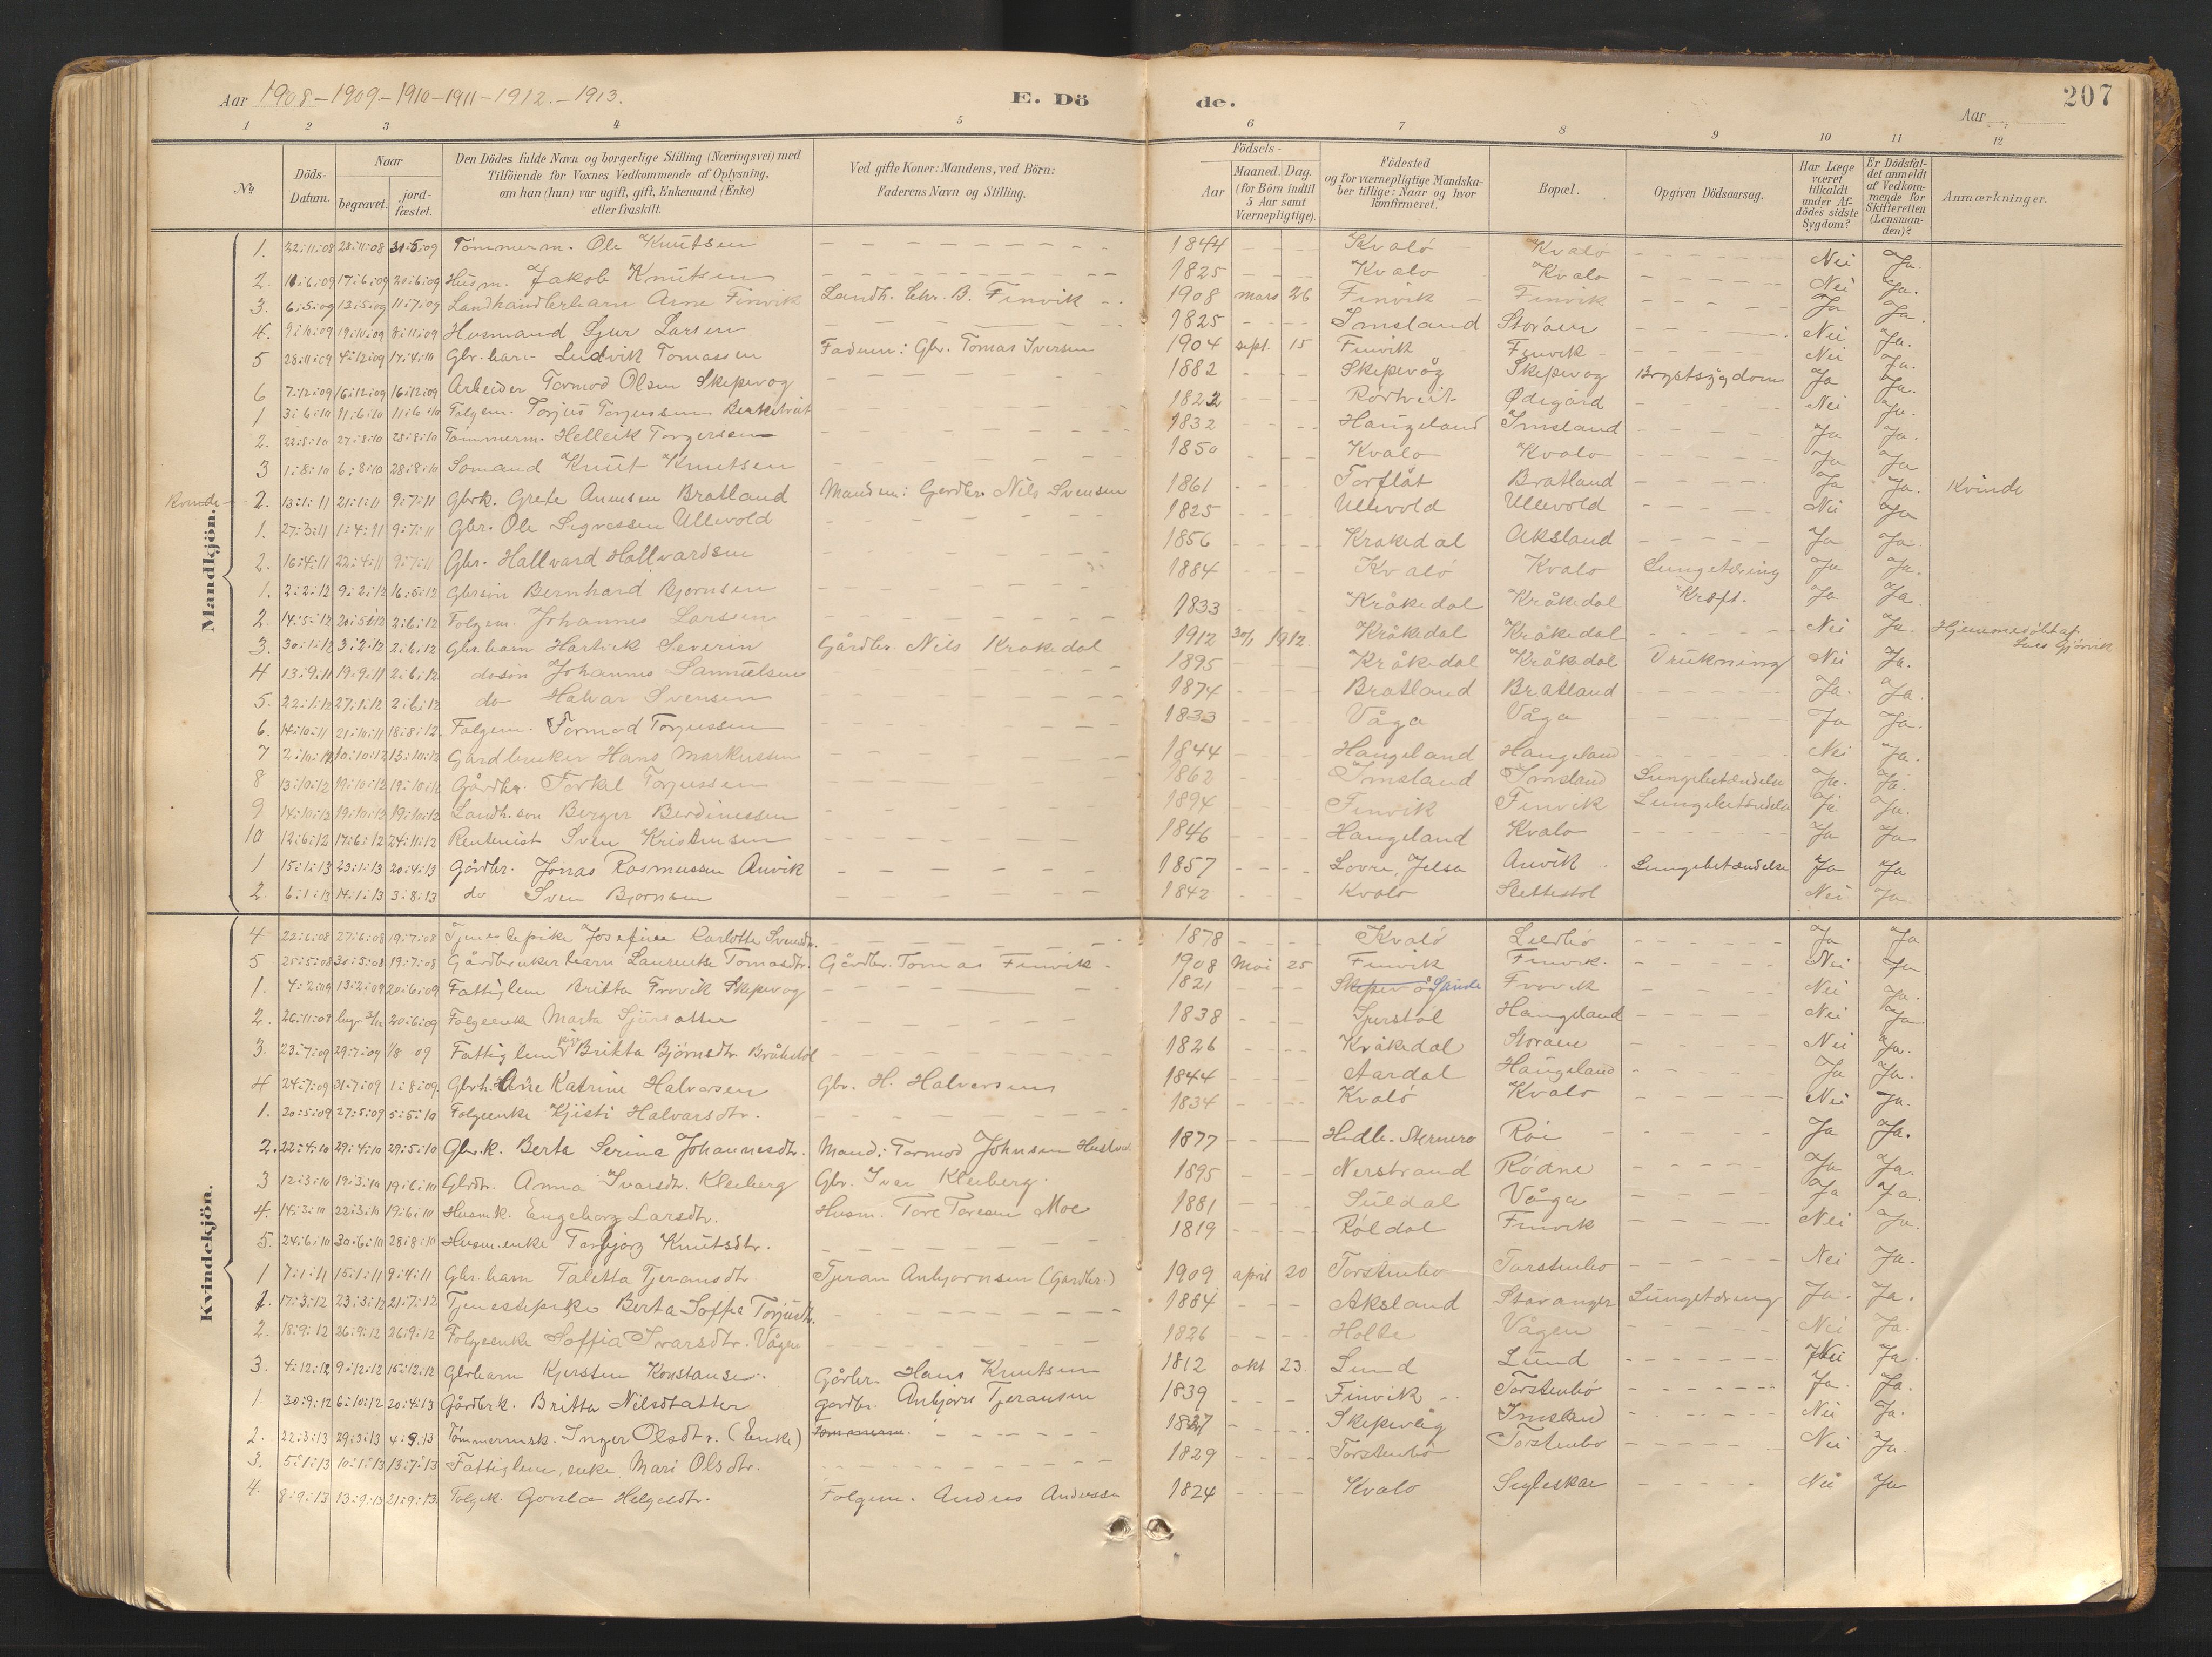 Aar 1908-1909-1910-1911-1912.-1913. E. Döde. Aar 207
1 2 3 4 5 6 7 8 9 10 11 12
No Döds-Datum. Naar begravet. jordfæstet. Den Dödes fulde Navn og borgerlige Stilling (Næringsvei) med Tilföiende for Voxnes Vedkommende af Oplysning, om han (hun) var ugift, gift, Enkemand (Enke) eller fraskilt. Ved gifte Koner: Mandens, ved Börn: Faderens Navn og Stilling. Födsels- Aar Maaned. Dag. (for Börn indtil 5 Aar samt Værnepligtige). Födested og for værnepligtige Mandskaber tillige: Naar og hvor konfirmeret. Bopæl. Opgiven Dödsaarsag. Har Læge været tilkaldt under Afdödes sidste Sygdom? Er Dödsfaldet anmeldt af Vedkommende for Skifteretten (Lensmanden)? Anmærkninger.
Mandkjön.
1. 22:11:08 28:11:08 31:5:09 Tömmerm. Ole Knutsen 1844 Kvalö Kvalö Nei Ja.
2. 11:6:09 17:6:09 20:6:09 Husm. Jakob Knutsen 1825 Kvalo Kvalo Nei Ja.
3. 6:5:09 13:5:09 11:7:09 Landhandlerbarn Arne Finvik Landh. Chr. B. Finvik 1908 mars 26 Finvik Finvik Ja Ja.
4. 9:10:09 19:10:09 8:11:09 Husmand Sjur Larsen 1825 Imsland Storåen Nei Ja.
5 28:11:09 4:12:09 17:4:10 Gbr. barn Ludvik Tomassen Faderen: Gbr. Tomas Iversen 1904 sept. 15 Finvik Finvik Nei Ja.
6 7:12:09 16:12:09 16:12:09 Arbeider Tormod Olsen Skepevog 1882 Skepevåg Skepevog Brystsygdom Ja Ja.
1 3:6:10 11:6:10 11:6:10 Folgem. Torjus Torjussen Berketveit 1822 Rörtveit Ødegård Nei Ja.
2. 22:8:10 27:8:10 28:8:10 Tömmerm. Helleik Torgersen 1832 Haugeland Imsland Ja Ja.
3 1:8:10 6:8:10 28:8:10 Somand Knut Knutsen 1850 Kvalo Kvalo Ja Ja
Kvinde 2. 13:1:11 21:1:11 9:7:11 Gbrk. Grete Anensen Bratland Manden: Gardbr. Nils Svensen 1861 Torflåt Bratland Ja Ja. Kvinde
1. 27:3:11 1:4:11 9:7:11 Gbr. Ole Segvessen Ullevold 1825 Ullevold Ullevold Nei Ja
2. 16:4:11 22:4:11 9:7:11 Gbr. Hallvard Hallvardsen 1856 Krakedal Aksland Ja Ja.
1. 2:2:12 9:2:12 16:5:12 Gbrsön Bernhard Bjornsen 1884 Kvalö Kvalo Lungetæring Ja Ja.
2. 14:5:12 20:5:12 2:6:12 Folgem. Johannes Larssen 1833 Kråkedal Kråkedal Kræft. Ja Ja.
3. 30:1:12 3:2:12 2:6:12 Gbr. barn Hartvik Severin Gårdbr. Nils Krakedal 1912 30/1 1912 Kråkedal Kråkedal Nei Ja. Hjemmedöbt af Lars Gjörvik
4 13:9:11 19:9:11 2:6:12 do sön Johannes Samuelsen 1895 Kråkedal Kråkedal Drukning Nei Ja.
5. 22:1:12 27:1:12 2:6:12 do Halvar Svensen 1874 Bratland Bratland Ja. Ja.
6. 14:10:11 21:10:11 18:8:12 Folgem. Tormod Torjussen 1833 Våga Våga Ja Ja.
7 2:10:12 10:10:12 13:10:12 Gardbruker Hans Markussen 1844 Haugeland Haugeland Nei Ja.
8 13:10:12 19:10:12 19:10:12 Gårdbr. Torkel Torjussen 1862 Imsland Imsland Lungebetændelse Ja. Ja.
9 14:10:12 19:10:12 19:10:12 Landh. sön Berger Berdinessen 1894 Finvik Finvik Lungebetændelse Ja Ja.
10 12:6:12 17:6:12 24:11:12 Rentenist Sven Kristensen 1846 Haugeland Kvalo Ja Ja
1 15:1:13 23:1:13 20:4:13 Gårdbr. Jonas Rasmussen Anvik 1857 Lovra, Jelsa Anvik Lungebetændelse Ja Ja
2 6:1:13 14:1:13 3:8:13 do Sven Bjornsen 1842 Kvalo Slettestol Nei Ja
Kvindekjön.
4 22:6:08 27:6:08 19:7:08 Tjenestepike Josefine Karlotte Svensdtr. 1878 Kvalö Ja Ja
5 25:5:08 30:5:08 19:7:08 Gårdbrukerbarn Laurentse Tomasdtr. Gårdbr. Tomas Finvik 1908 Mai 25 Finvik Finvik. Nei Ja
1. 4:2:09 13:2:09 20:6:09 Fattiglem Britta Frovik Skepevog 1821 Skepevåg Sande Frovik Nei Ja.
2. 26:11:08 begr. 3/12 20:6:09 Folgeenke Marta Sjursdatter 1838 Haugeland Nei Ja.
3. 23:7:09 29:7:09 1/8 09 Fattiglem Britta Björnsdtr. Bråtestöl 1826 Kråkedal Storåen Nei Ja.
4 24:7:09 31:7:09 1:8:09 Gbrh. Ane Katrine Halvorsen Gbr. H. Halvorsens 1844 Aardal Haugeland Ja Ja.
1. 20:5:09 27:5:09 5:5:10 Folgeenke Kjisti Halvarsdtr. 1834 Kvalö Kvalo Nei Ja.
2. 22:4:10 29:4:10 29:5:10 Gbr. k. Berta Serina Johannesdtr. Mand: Tormod Johnsen 1877 Röi Ja Ja.
3 12:3:10 19:3:10 19:6:10 Gbrdtr. Anna Ivarsdtr. Kleiberg Gbr. Ivar Kleiberg. 1895 Nerstrand Rödne Ja Ja.
4. 14:3:10 22:3:10 19:6:10 Husmk. Engeborg Larsdtr. Husm. Tore Toresen Moe 1881 Suldal Våga Ja Ja.
5. 24:6:10 30:6:10 28:8:10 Husm. enke Torbjorg Knutsdtr. 1819 Röldal Finvik Nei Ja.
1 7:1:11 15:1:11 9:4:11 Gbr. barn Taletta Tjeransdtr. Tjeran Anbjornsen (Gardbr.) 1909 april 20 Torstenbo Torstenbo Nei Ja.
1. 17:3:12 23:3:12 21:7:12 Tjenestepike Berta Soffia Torjusdtr. 1884 Aksland Stavanger Lungetæring Ja. Ja.
2. 18:9:12 26:9:12 26:9:12 Folgeenke Soffia Ivarsdtr. Vågen 1826 Holte Vågen Nei Ja.
3. 4:12:12 9:12:12 15:12:12 Gbrbarn Kjersten Konstanse. Gårbr. Hans Knutsen 1812 okt 23. Lund Lund Nei Ja.
1. 30:9:12 6:10:12 20:4:13 Gårdbrk. Britta Nilsdtatter gardbr. Anbjorn Tjeransen 1839 Finvik Torstenbö Ja Ja.
2. 22:3:13 29:3:13 4:9:13 Tömmermsk. Inger Olsdtr. (Enke) Tommerm. 1827 Skepevåg Imsland Nei Ja.
3. 5:1:13 10:1:13 13:7:13 Fattiglem, enke Mari Olsdtr. 1829 Torstenbö Torstenbo Nei Ja.
4. 8:9:13 13:9:13 21:9:13. Folgek. Gonla Helgesdtr. Folgem. Andres Anderssen 1824 Kvalo Segleskar Nei Ja